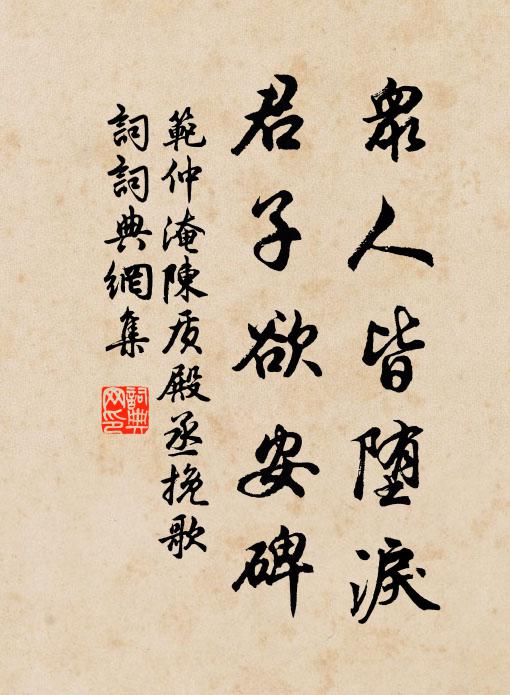 眾人皆堕淚
君子欲安碑
範仲淹陳质殿丞挽歌
詞詞典網集
詞典网印